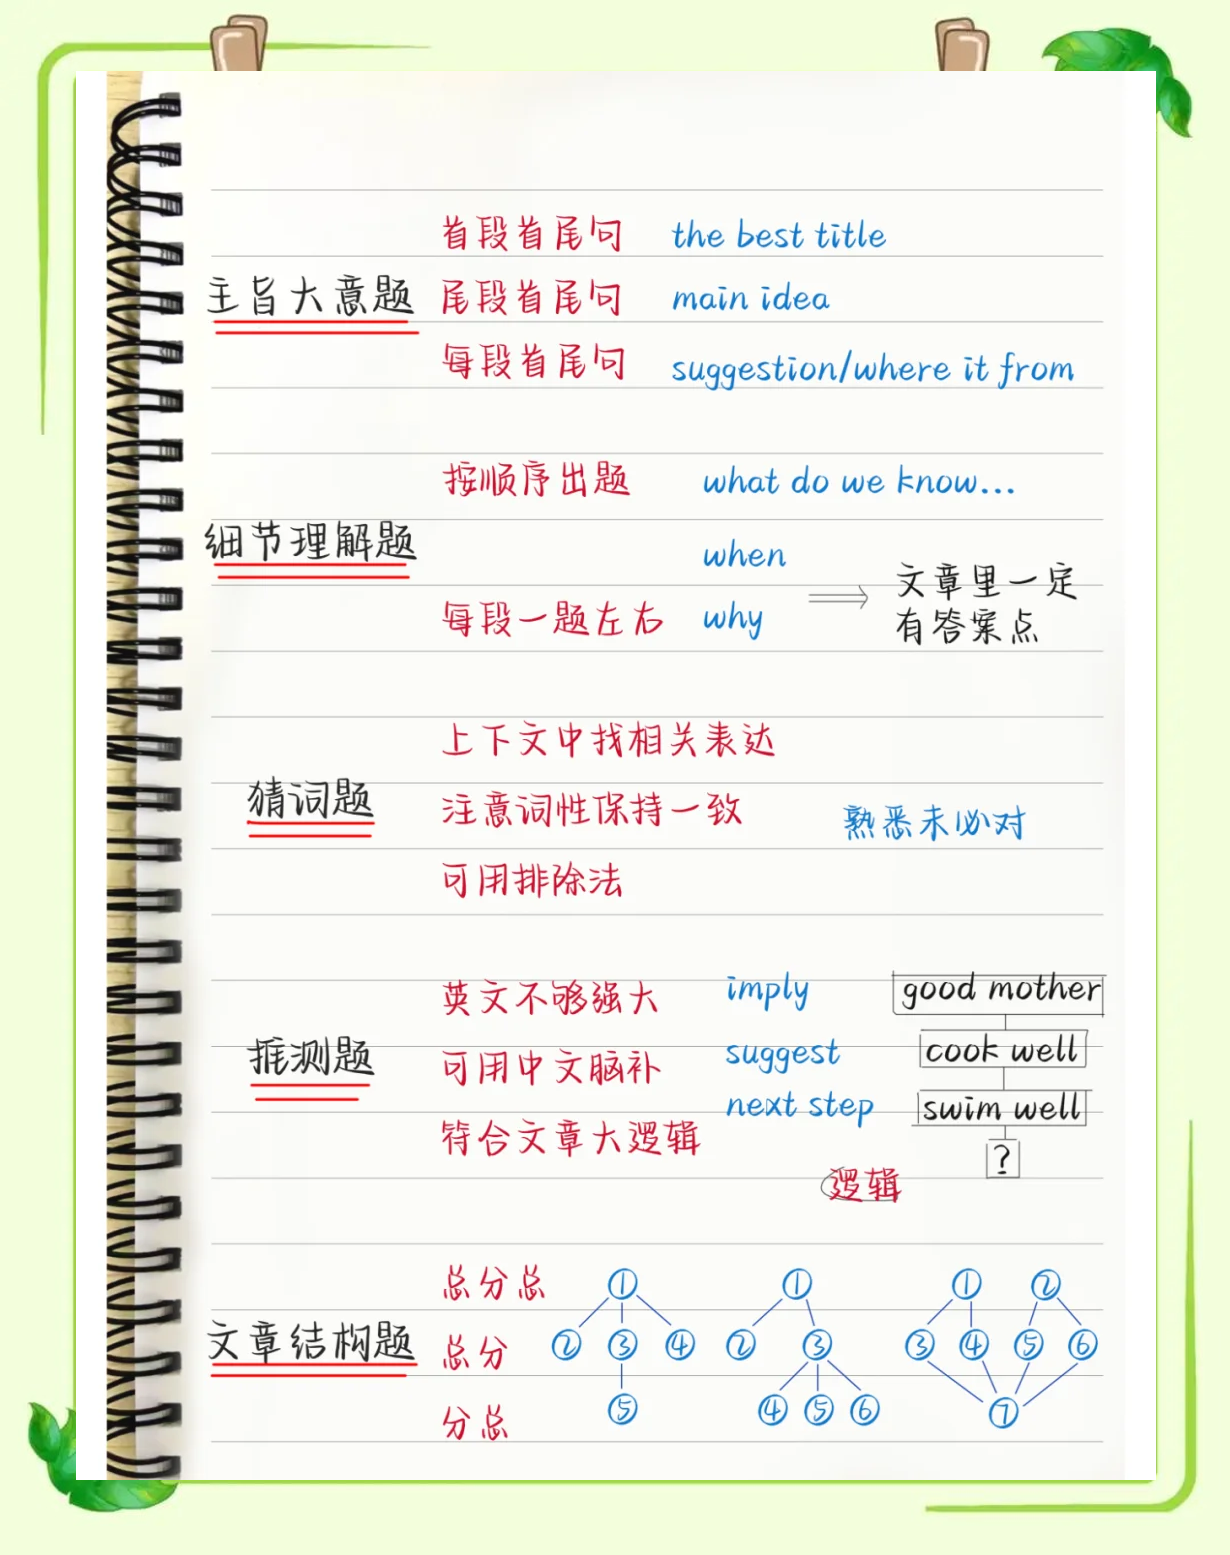 首段首尾句 the best title
主旨大意题 尾段首尾句 main idea
每段首尾句 suggestion/where it from
按顺序出题 what do we know...
细节理解题
when
每段一题左右 why
文章里一定
有答案点
上下文中找相关表达
猜词题 注意词性保持一致 熟悉未必对
可用排除法
英文不够强大 imply good mother
推测题 可用中文脑补 suggest cook well
next step swim well
符合文章大逻辑
?
逻辑
总分总 ① ① ① ②
文章结构题 总分 ② ③ ④ ② ③ ③ ④ ⑤ ⑥
分总 ⑤ ④ ⑤ ⑥ ⑦